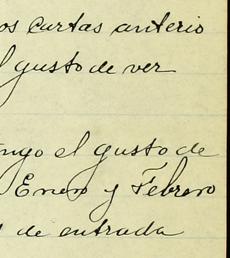 os cartas anterio
l gusto de ver
ngo el gusto de
Enero y Febrero
de entrada